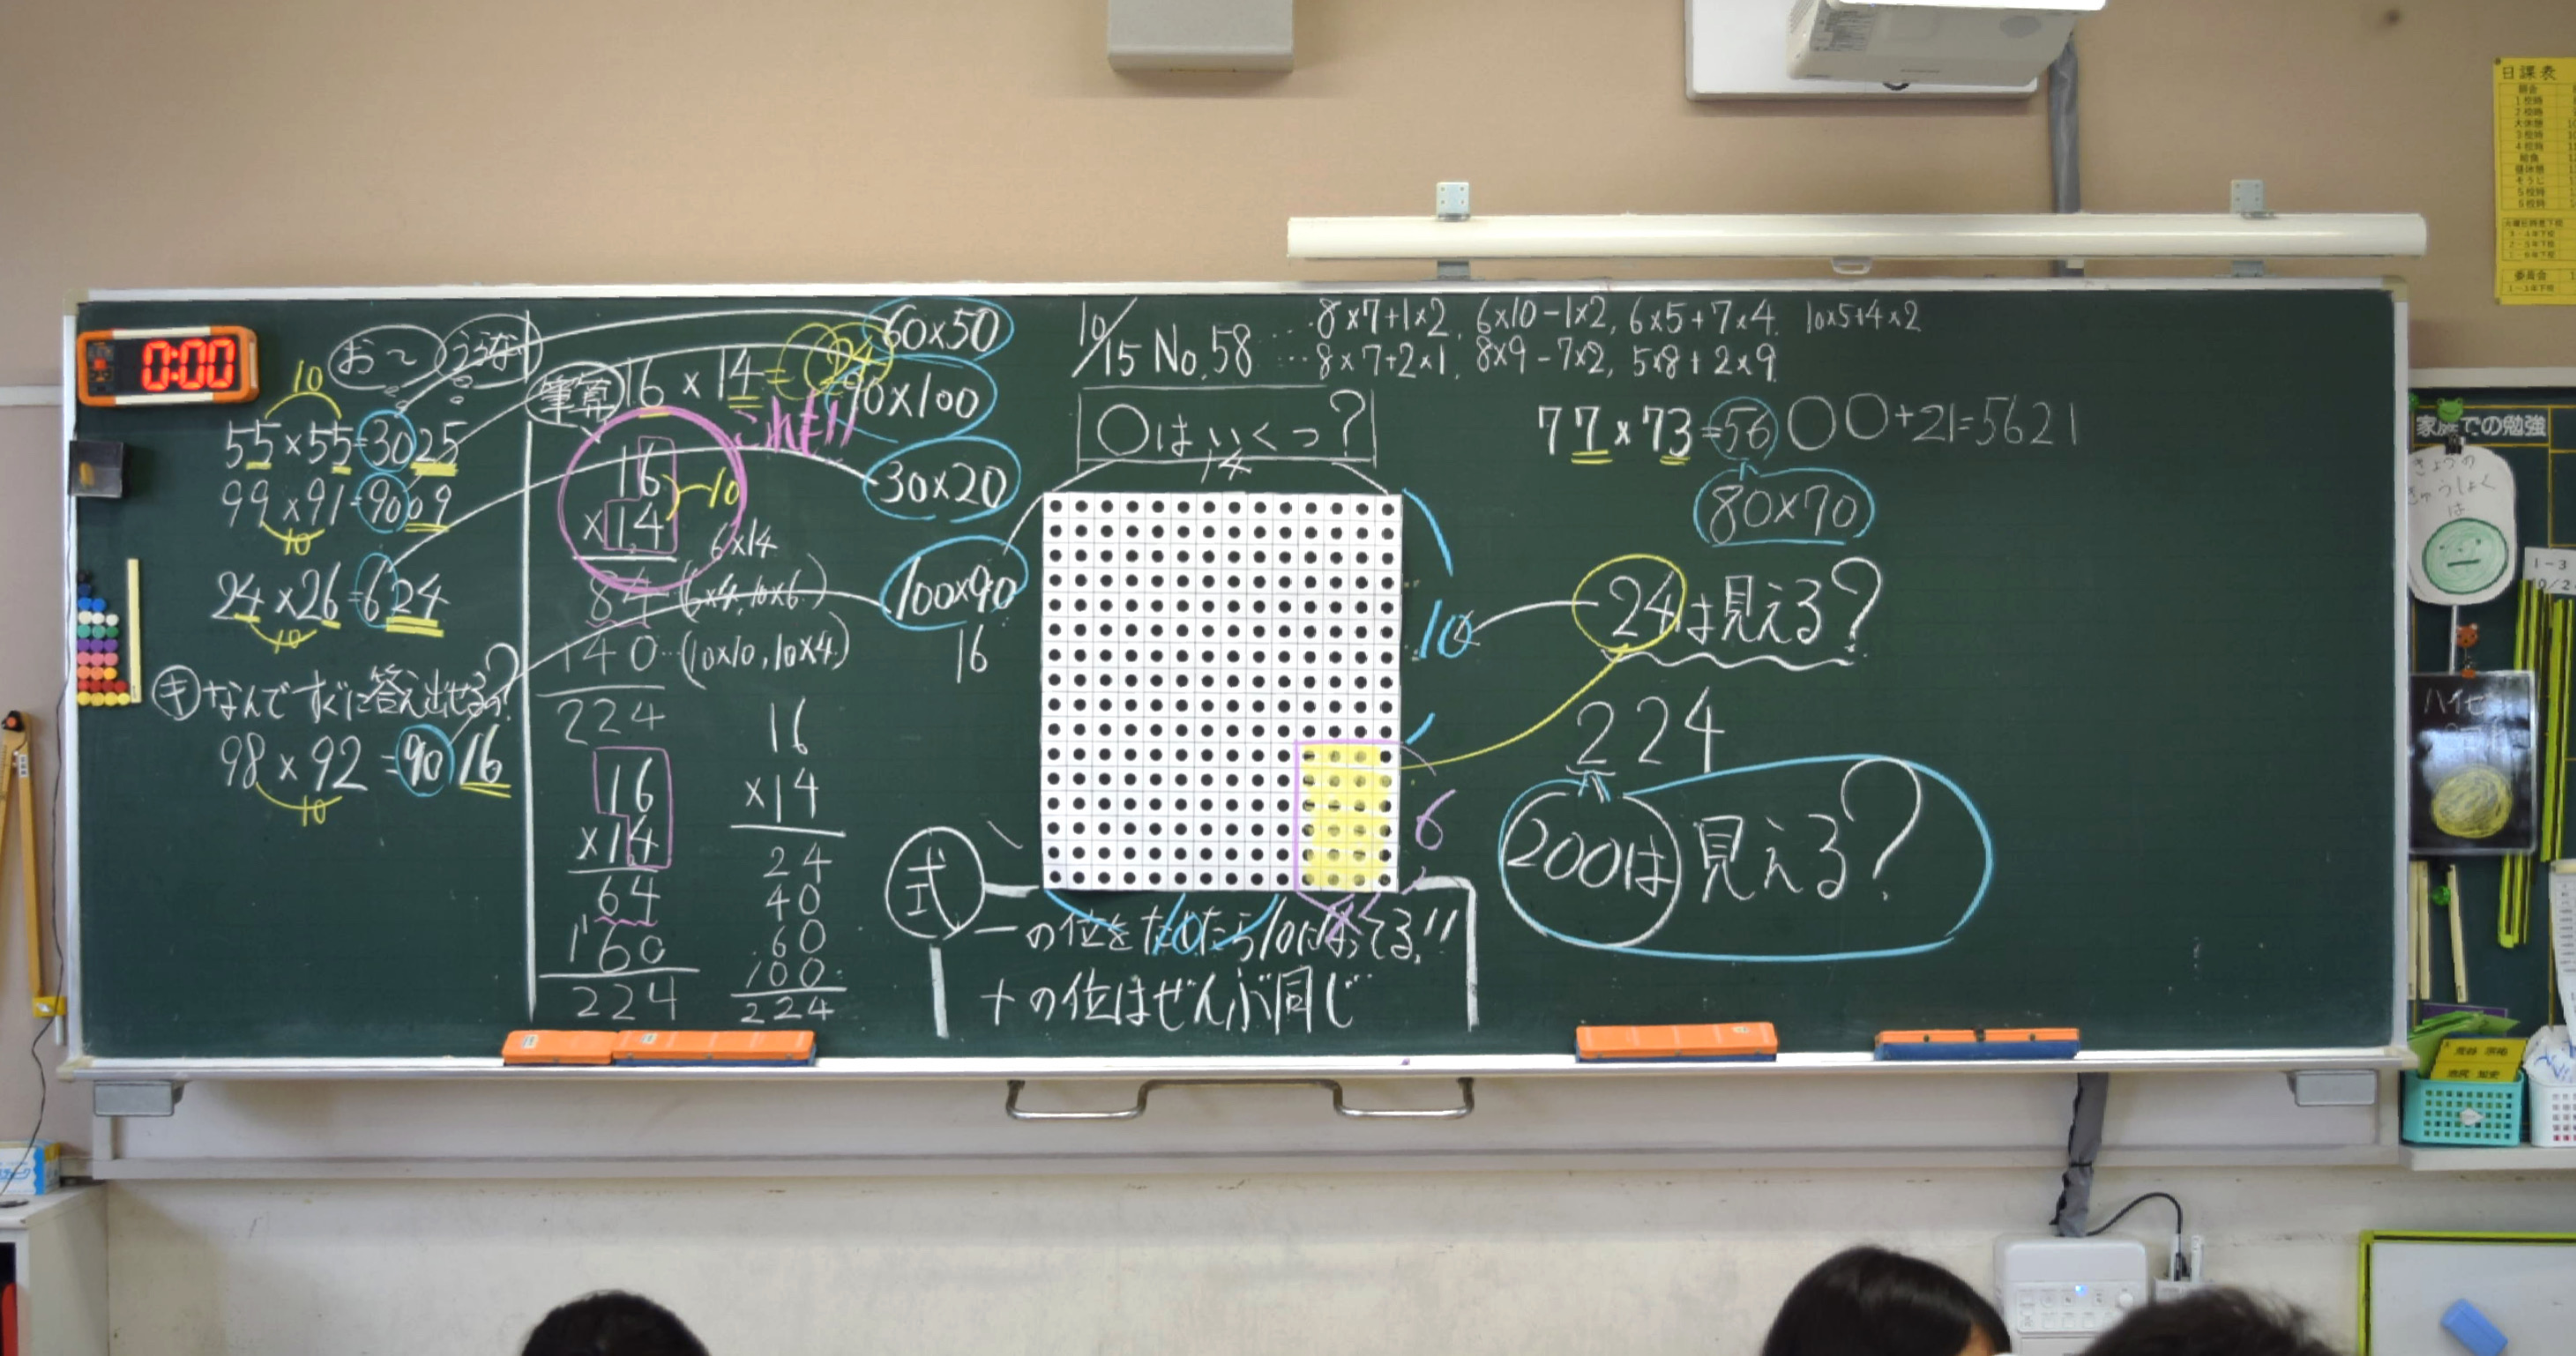 0:00
お〜 うるない
10
55×55=3025
99×91=9009
10
24×26=624
10
キ なんですぐに答え出せるの?
98×92=9016
10
筆算 16×14=224
これも!!
16
×14
10
6×14
84 (6×4, 10×6)
140…(10×10, 10×4)
224
16
×14
64
160
224
16
×14
24
40
60
100
224
60×50
90×100
30×20
100×90
16
10/15 No.58
…8×7+1×2, 6×10-1×2, 6×5+7×4, 10×5+4×2
…8×7+2×1, 8×9-7×2, 5×8+2×9
○はいくつ?
14
10
6
10
4
式
一の位をたしたら10になってる!!
十の位はぜんぶ同じ
77×73=56○○+21=5621
80×70
24は見える?
224
200は見える?
日課表
朝会
1校時
2校時
大休憩
3校時
4校時
給食
昼休憩
そうじ
5校時
6校時
委員会
家庭での勉強
きょうの
きゅうしょく
は
1-3
10/2